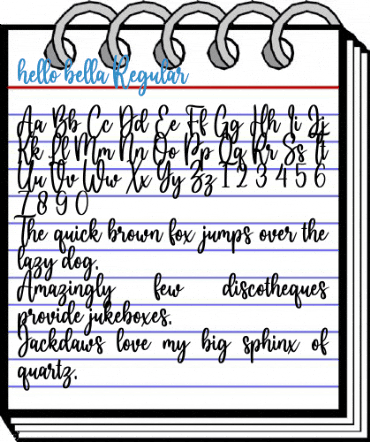 hello bella Regular
Aa Bb Cc Dd Ee Ff Gg Hh Ii Jj
Kk Ll Mm Nn Oo Pp Qq Rr Ss Tt
Uu Vv Ww Xx Yy Zz 1 2 3 4 5 6
7 8 9 0
The quick brown fox jumps over the
lazy dog.
Amazingly few discotheques
provide jukeboxes.
Jackdaws love my big sphinx of
quartz.